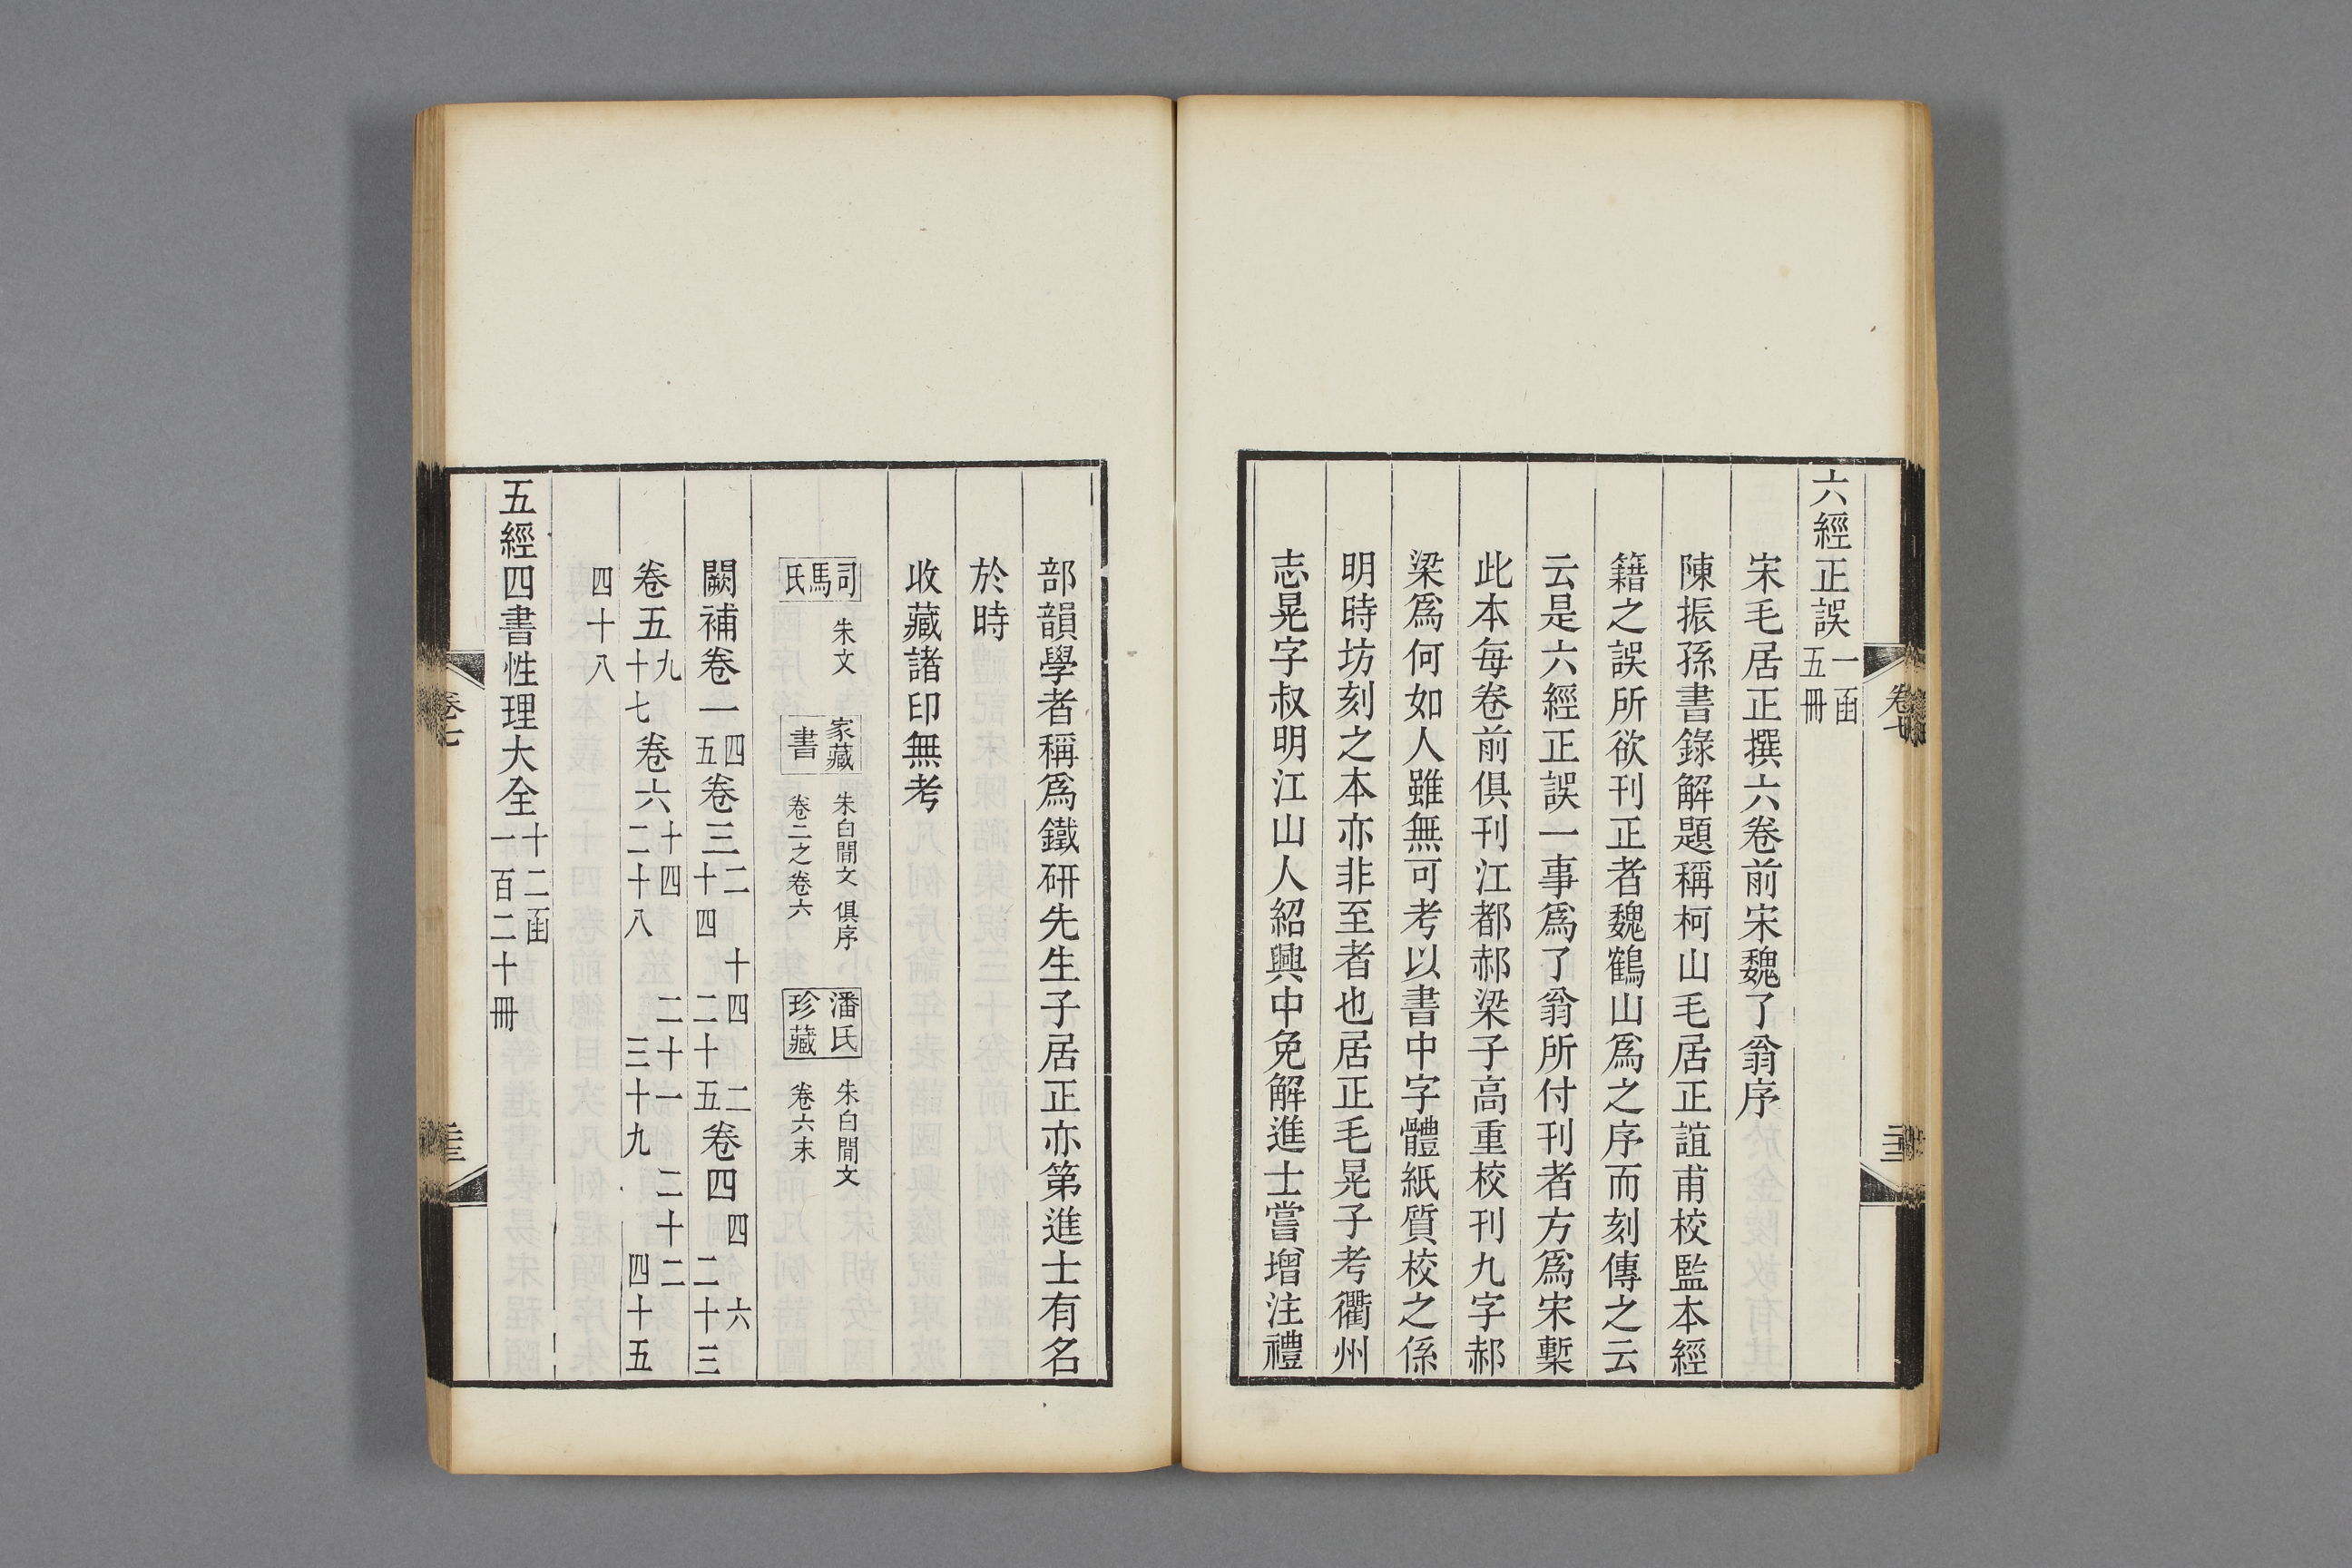 六經正誤一函五冊
宋毛居正撰六卷前宋魏了翁序
陳振孫書錄解題稱柯山毛居正誼甫校監本經
籍之誤所欲刊正者魏鶴山爲之序而刻傳之云
云是六經正誤一事爲了翁所付刊者方爲宋槧
此本每卷前俱刊江都郝梁子高重校刊九字郝
梁爲何如人雖無可考以書中字體紙質校之係
明時坊刻之本亦非至者也居正毛晃子考衢州
志晃字叔明江山人紹興中免解進士嘗增注禮
部韻學者稱爲鐵研先生子居正亦第進士有名
於時
收藏諸印無考
司馬氏 朱文 家藏書 朱白閒文 俱序 卷二之卷六 潘氏珍藏 朱白閒文 卷六末
闕補卷一 四 五 卷三 二 十四 十四 二十五 二 卷四 四 二十三 六
卷五 九 十七 卷六 十四 二十八 二十一 三十九 二十二 四十五
四十八
五經四書性理大全十二函一百二十冊
卷七
卷七